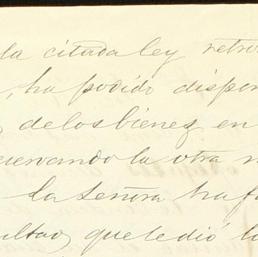 la citada ley retro
, ha podido dispon
de los bienes en
servando la otra m
la Señora ha fa
cultad que le dió la